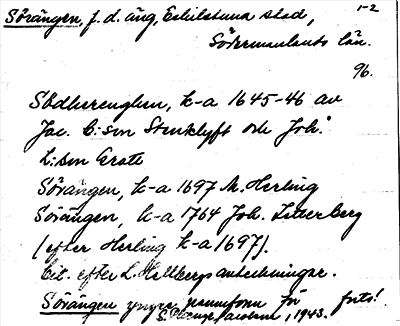 Sörängen, f.d. äng, Eskilstuna stad, 1-2
Södermanlands län.
96.
Södherenghen, k-a 1645-46 av
Jac. C:son Stenklyft och Joh.
L:son Grot
Sörängen, k-a 1697 M. Herling
Sörängen, k-a 1764 Joh. Litterberg
(efter Herling k-a 1697).
Cit. efter L. Hellbergs anteckningar.
Sörängen yngre namnform för forts!
1943.